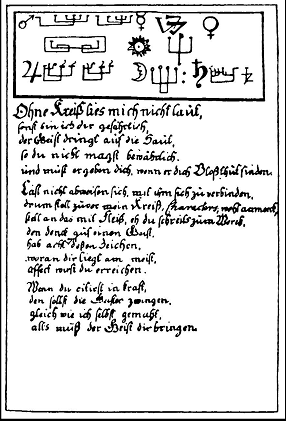 Ohne Kreiß lies mich nicht laut,
sonst bin ich dir gefährlich,
der Geist dringt auf die Haut,
so du nicht magst bewährlich.
und muß ergeben dich, wenn er dich
Laß nicht abweisen sich, mit ihm sich zu verbinden,
drum stell zuvor mein Kreiß, Characters, wohl
den denck auf einen Geist,
hab acht deßen Zeichen,
woran dir liegt am meist,
affect wirst du erreichen.
Wann du citiest in kraft,
den sollst die zwingen.
gleich wie ich selbst gemuht,
alls muß der Geist dir bringen.